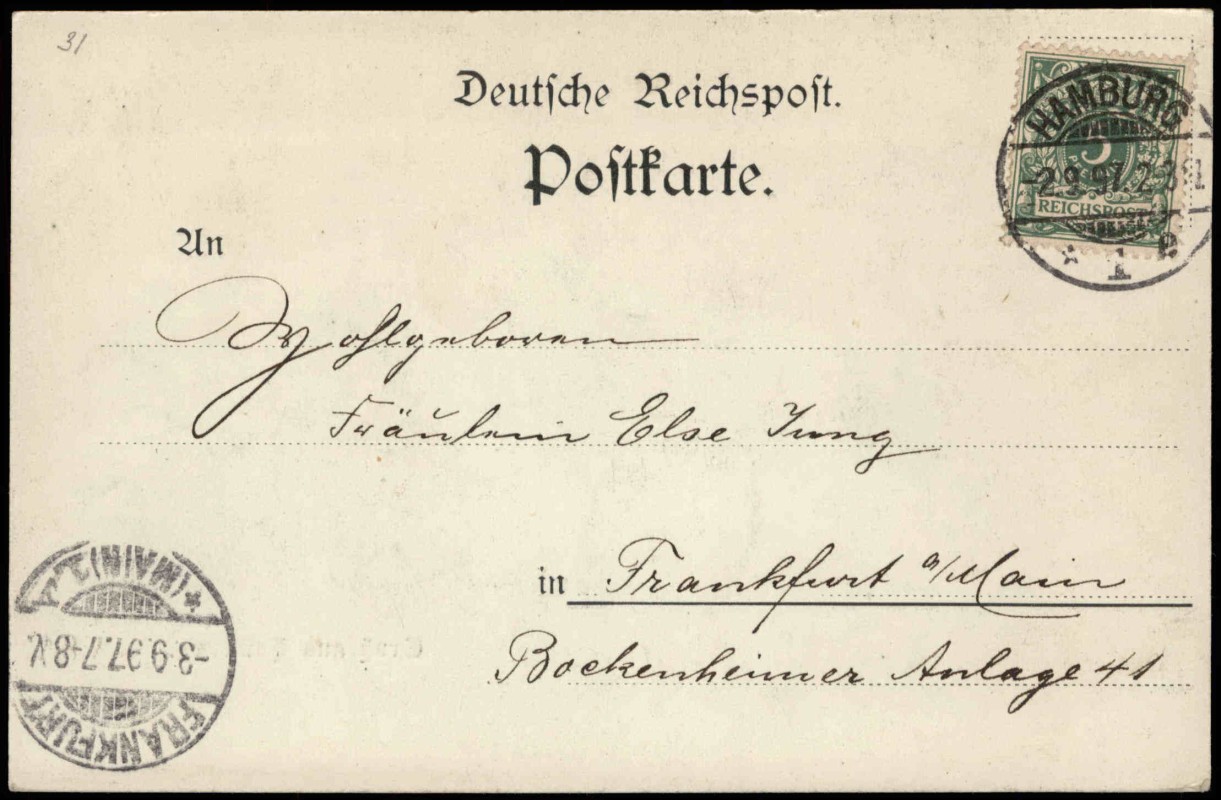 31
Deutsche Reichspost.
Postkarte.
HAMBURG
5
-2.9.97. 2-3N
REICHSPOST
* 1 e
An
Wohlgeboren
Fräulein Else Jung
in Frankfurt a/Main
Bockenheimer Anlage 41
*(MAIN)
-3.9.97. 7-8V.
FRANKFURT